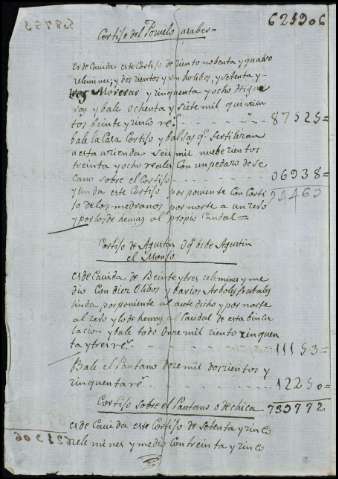 621906
Cortijo del Pozuelo a saber
es de Cauida este Cortijo de ciento nobenta y quadro
zelemines, y dozientos y un holibos, y setenta y
tres Moreras y zinquenta y ocho
y bale ochenta y siete mil quinien
tos beinte y zinco rs 87525=
bale la Casa Cortijo y balsas qe fertilizan
a esta azienda seis mil nuebezientos
treinta y ocho reales Con un pedazo de se
cano sobre el Cortijo 06938=
y linda este Cortijo por poniente Con Corti 94463
jo de los medranos por norte a un zerro
y por lo de demas al propio Caudal
Cortijo de Agustin Digo de Agustin
el Monjo
es de Cauida de beinte y tres zelemines y me
dio Con diez Olibos y barios Arboles frutales
linda por poniente al ante dicho y por norte
al zerro y lo de demas al Caudal de esta bincu
lacion y bale todo Onze mil ciento zinquen
ta y tres rs 11153=
Bale el Pantano doze mil dozientos y
zinquenta rs 12250=
Cortijo sobre el Pantano o de chica 739772
es de Cauida este Cortijo de Setenta y zinco
zelemines y medio Con treinta y zinco